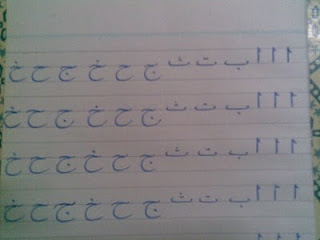 ا ا ا ب ت ث ج ح خ ج ح خ
ا ا ا ب ت ث ج ح خ ج ح خ
ا ا ا ب ت ث ج ح خ ج ح خ
ا ا ا ب ت ث ج ح خ ج ح خ